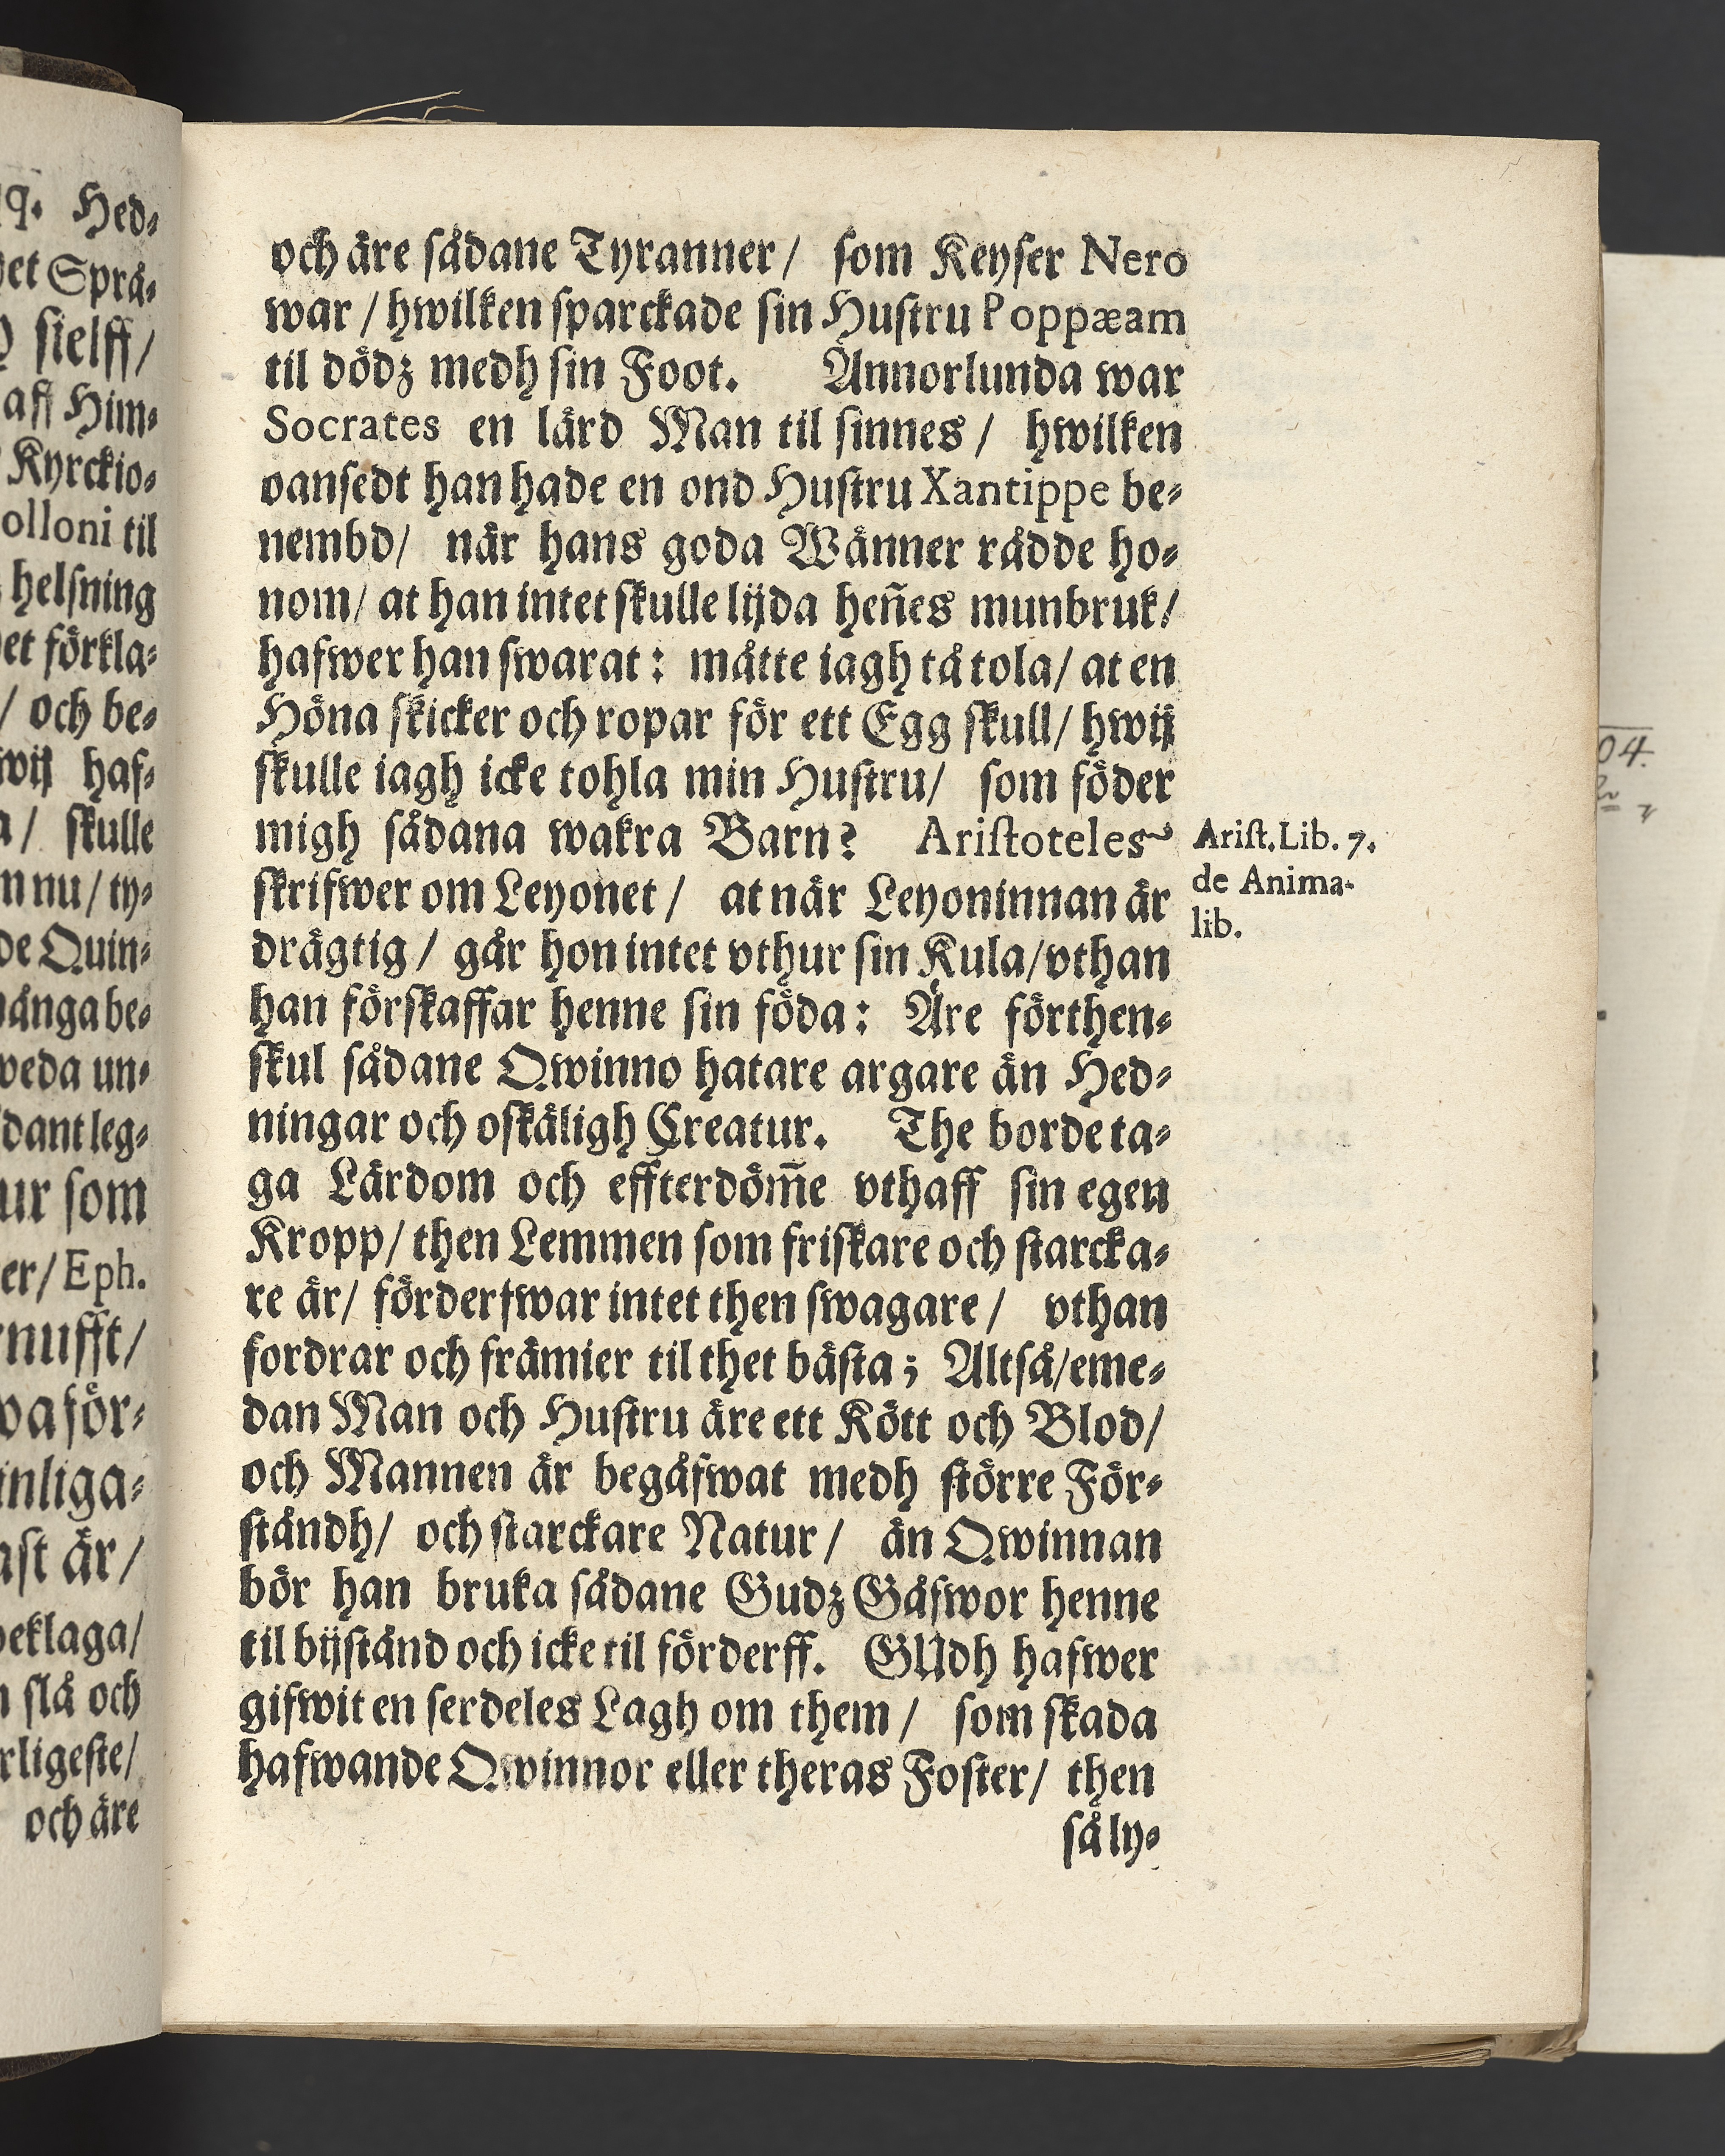 q. Hed⸗
et Språ⸗
sielff/
aff Him⸗
Kyrckio⸗
olloni til
helsning
et förkla⸗
/ och be⸗
wij haf⸗
a/ skulle
nu/ ty⸗
de Quin⸗
mångabe⸗
weda un⸗
dant leg⸗
ur som
er/ Eph.
nufft/
wa för⸗
inliga⸗
ast är/
beklaga/
slå och
rligeste/
och äre
och äre sådane Tyranner/ som Keyser Nero
war / hwilken sparckade sin Hustru Poppæam
til dödz medh sin Foot. Annorlunda war
Socrates en lärd Man til sinnes / hwilken
oansedt han hade en ond Hustru Xantippe be⸗
nembd/ när hans goda Wänner rådde ho⸗
nom/ at han intet skulle lijda heñes munbruk/
hafwer han swarat: måtte iagh tå tola/ at en
Höna skicker och ropar för ett Egg skull/ hwij
skulle iagh icke tohla min Hustru/ som föder
migh sådana wakra Barn? Aristoteles
skrifwer om Leyonet / at när Leyoninnan är
drägtig / går hon intet vthur sin Kula/vthan
han förskaffar henne sin föda: Äre förthen⸗
skul sådane Qwinno hatare argare än Hed⸗
ningar och oskäligh Creatur. The borde ta⸗
ga Lärdom och effterdöm̃e vthaff sin egen
Kropp/ then Lemmen som friskare och starcka⸗
re är/ förderfwar intet then swagare / vthan
fordrar och främier til thet bästa; Altså/eme⸗
dan Man och Hustru äre ett Kött och Blod/
och Mannen är begåfwat medh större För⸗
ståndh/ och starckare Natur / än Qwinnan
bör han bruka sådane Gudz Gåfwor henne
til bijstånd och icke til förderff. GUdh hafwer
gifwit en serdeles Lagh om them / som skada
hafwande Qwinnor eller theras Foster/ then
så ly⸗
Arist. Lib. 7.
de Anima-
lib.
04.